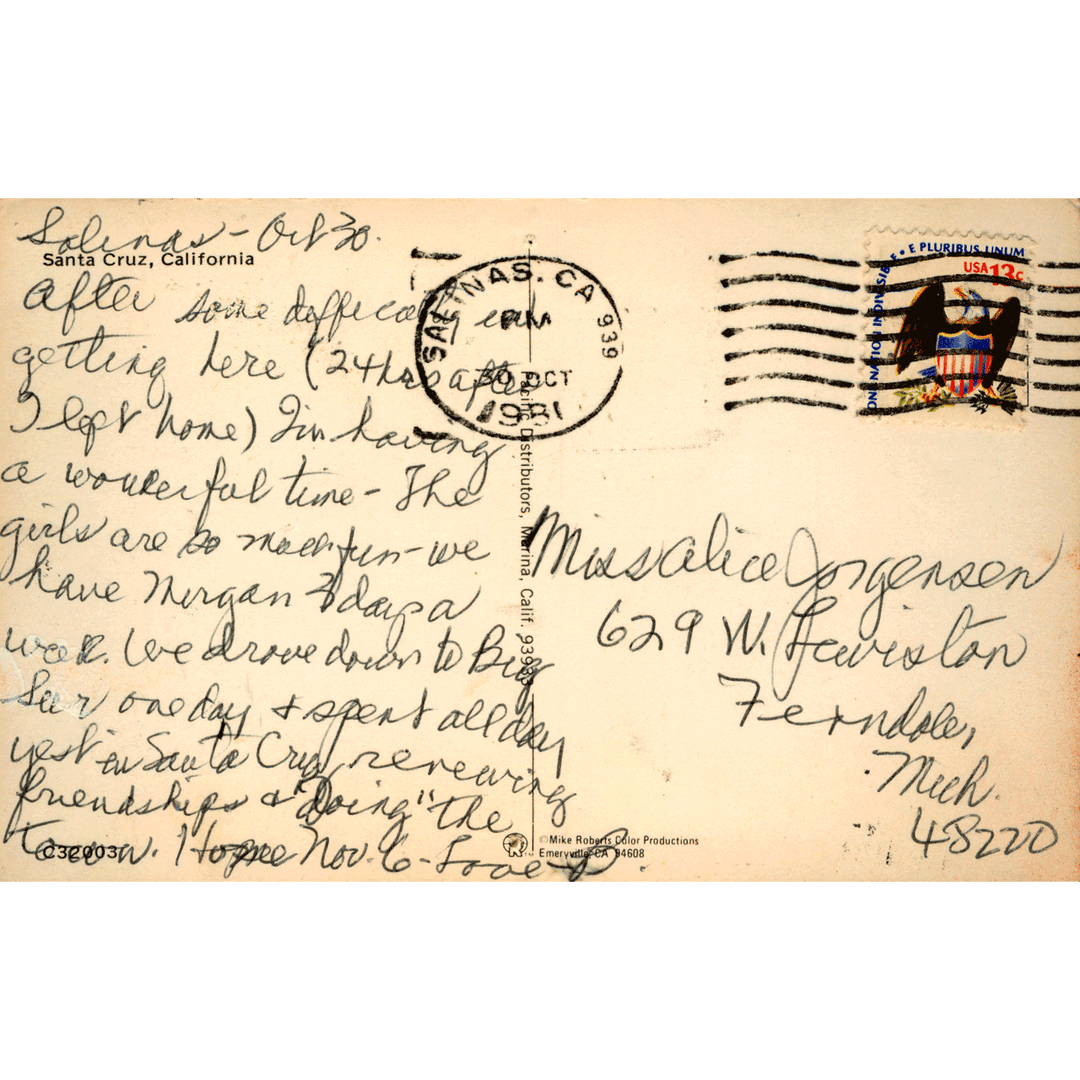 Salinas - Oct 30.
Santa Cruz, California
After some difficulty in
getting here (24 hrs after
I left home) I'm having
a wonderful time - The
girls are so much fun - we
have Morgan 3 days a
week. We drove down to Big
Sur one day & spent all day
yest in Santa Cruz, renewing
friendships & "Doing" the
town. Home Nov. 6 - Love -
C32003
SALINAS. CA 939
PM
30 OCT
1981
Distributors, Marina, Calif. 93933
©Mike Roberts Color Productions
Emeryville CA 94608
ONE NATION INDIVISIBLE • E PLURIBUS UNUM
USA 13c
Miss Alice Jorgensen
629 W. Lewiston
Ferndale,
Mich.
48220